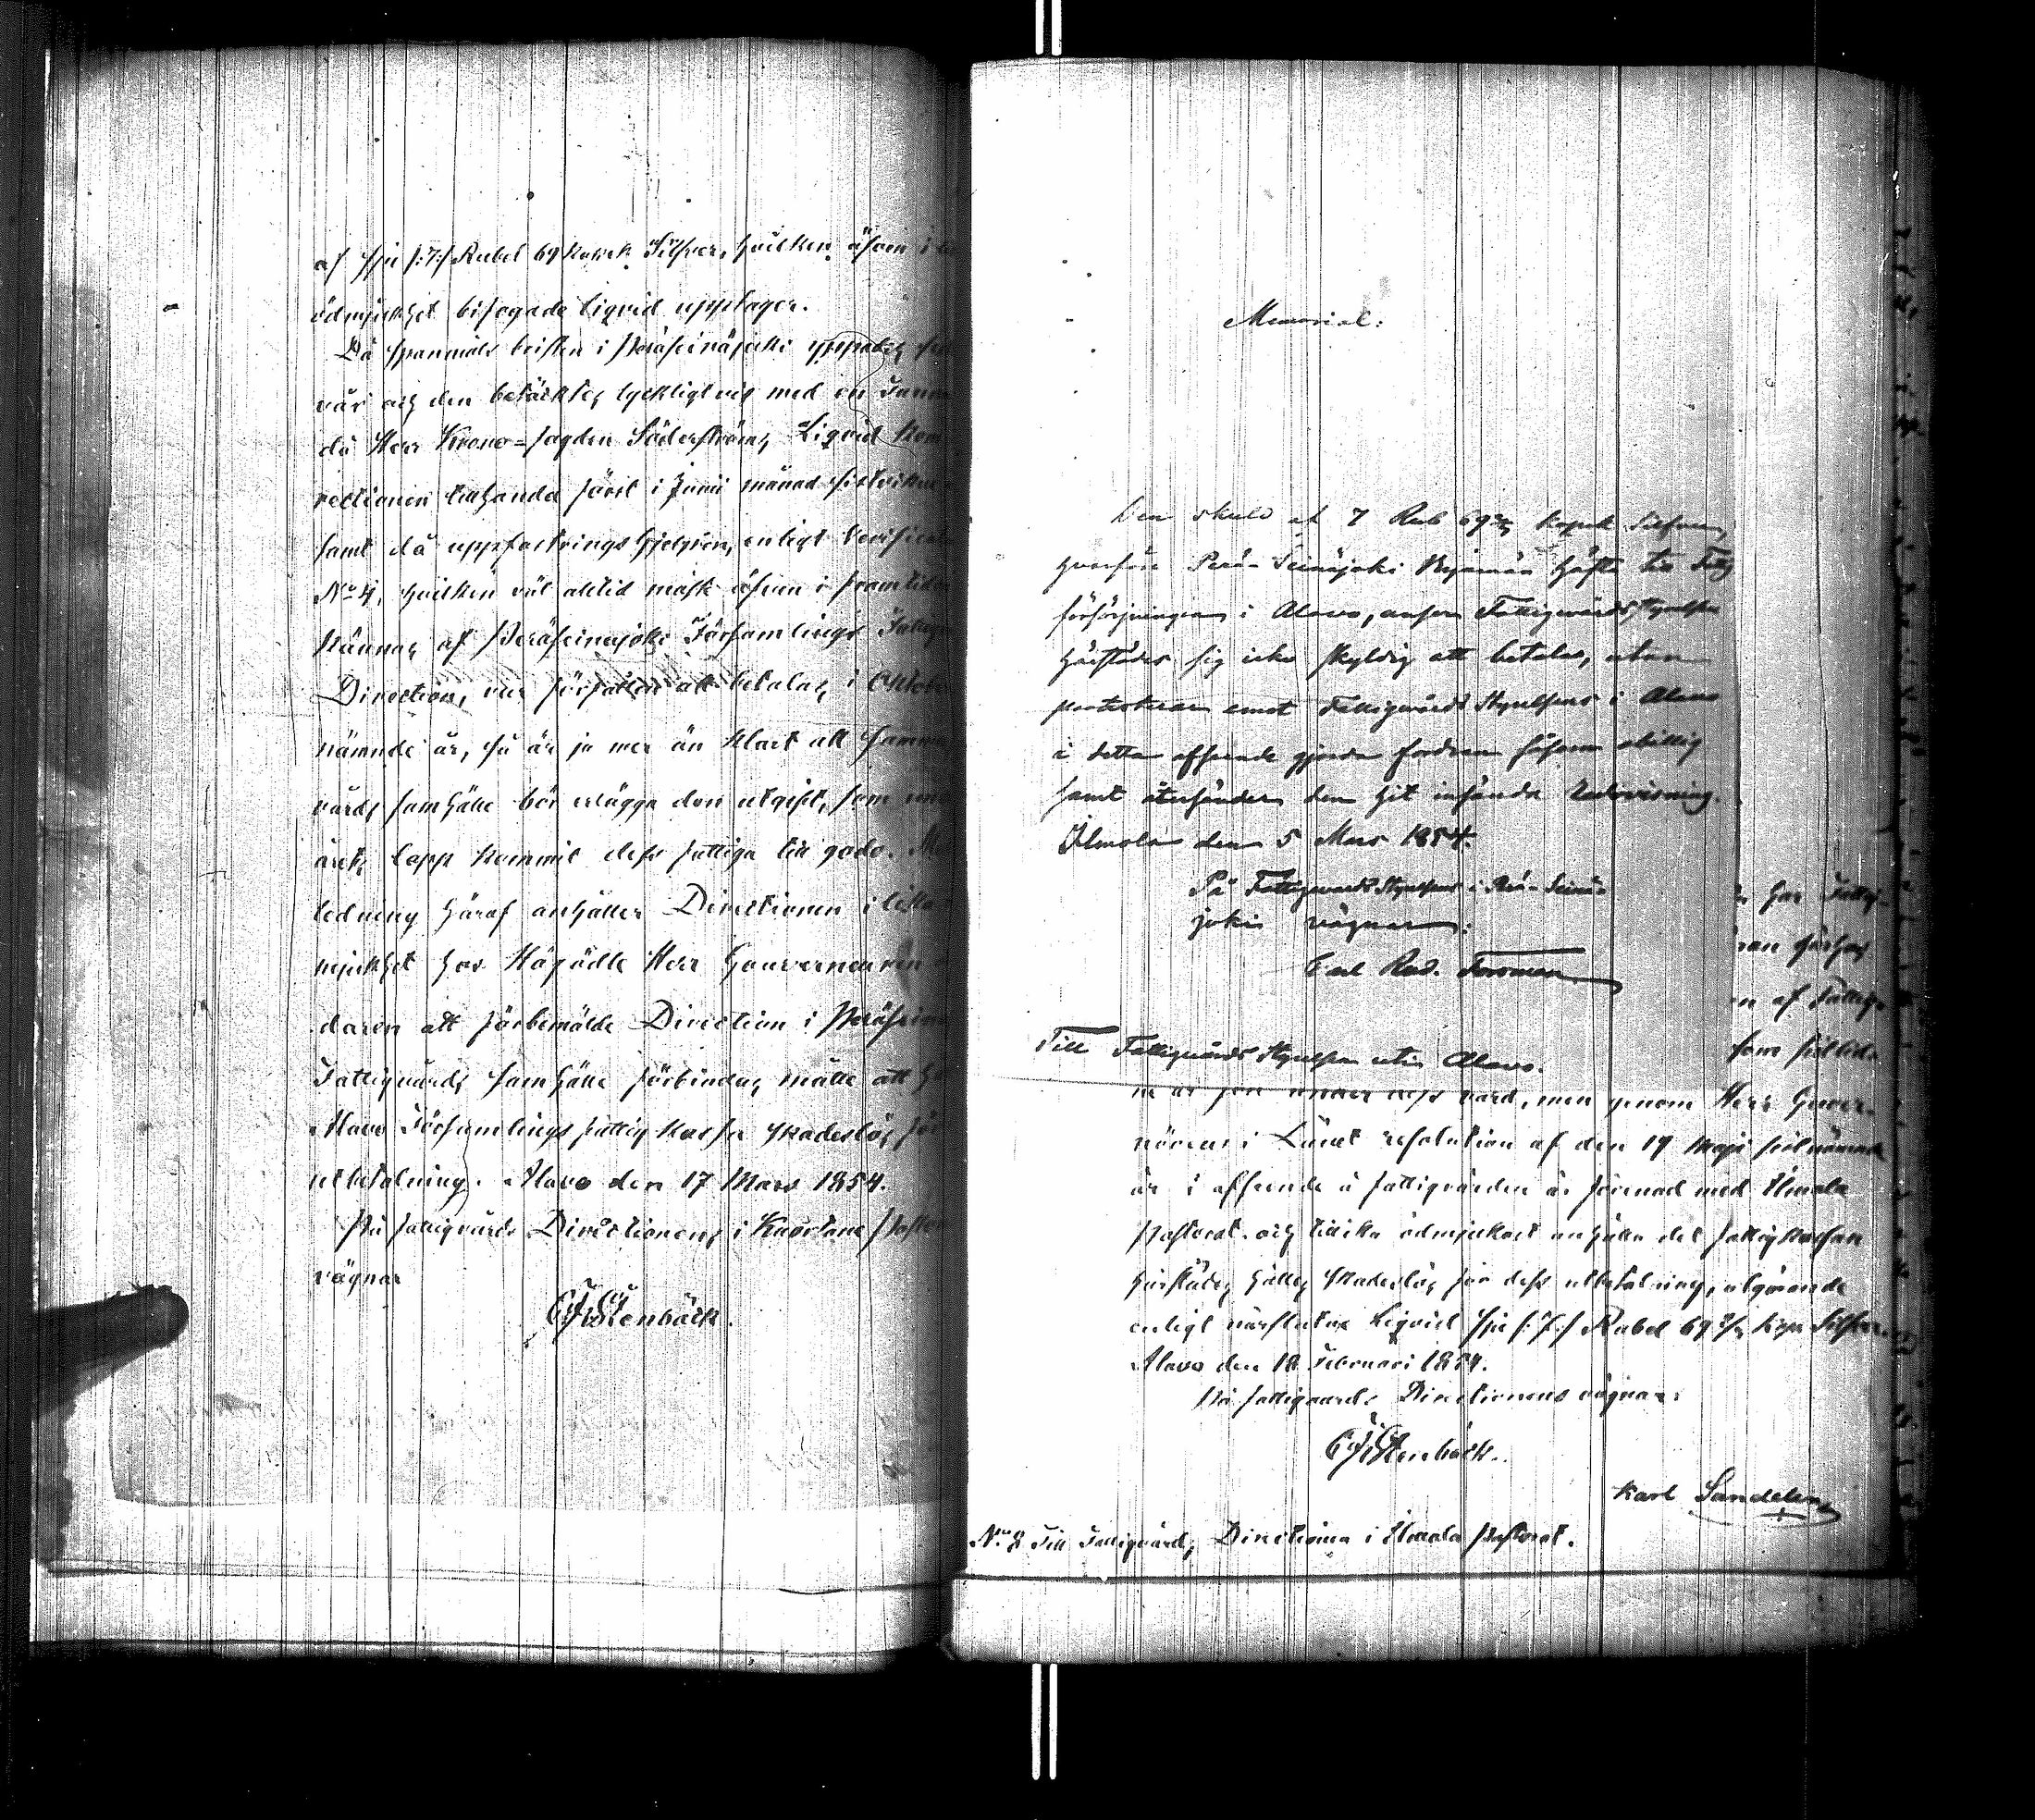 af sju /:7:/ Rubel 69 Kopek Silfver, hvilken äfven i
ödmjukhet bifogade liqvid upptager.
Då spanmåls bristen i Peräseinäjoki yppades
vår och den betäcktes lyckligtvis med en
då Herr Krono-fogden Söderströms Liqvid kom
rectionen tillhanda först i Junii månad sistvikne
samt då uppfostrings hjelpen, enligt Verificat
No 4, hvilken väl alltid måste äfven i framtiden
kännas af Peräseinäjoki Församlings Fattig
Direction, var förfallen att betalas i October
nämnde år, så är ju mer än klart att samma
vårds samhälle bör erlägga den utgift, som
årets lopp kommit dess fattiga till godo.
ledning häraf anhåller Directionen i
mjukhet hos Högädle Herr Gouverneuren
daren att förbemälde Direction i Peräseinä
Fattigvårds samhälle förbindas måtte att
Alavo Församlings fattig kassa skadeslös för
utbetalning. Alavo den 17 Mars 1854.
På fattigvårds Directionens i Kuortane Pastorats
vägnar
CF Stenbäck.
Memorial:
Den skuld af 7 Rub 69 Kopek Silfver,
hvarföre Perä-Seinäjoki häfta till
försörjningen i Alavo, anser Fattigvårds Styrelsen
härstädes sig icke skyldig att betala, utan
protesterar emot Fattigvårds Styrelsens i Alavo
i detta afseende gjorda fordran såsom obillig
samt återsänder den hit insända Redovisning.
Ilmola den 5 Mars 1854.
På Fattigvards Styrelsens i Perä-Seinä-
joki vägnar:
Carl Rud. Forsman
Till Fattigvårds Styrelsen uti Alavo.
har Fattig-
af Fattig-
som
vard, men genom Herr Guver-
nörens i Länet resolution af den 19 Maji sistnämnde
år i afseende å fattigvården är förenad med Ilmola
Pastorat. och tillika ödmjukast anhålla det fattigkassan
härstädes hålles skadeslös för dess utbetalning, utgörande
enligt närslutne Liqvid sju /:7:/ Rubel 69 Kop. Silfver.
Alavo den 18 Februari 1854.
På fattigvards Directionens vägnar:
CF Stenbäck.
Karl Sandelin
No 8 Till Fattigvårds Directionen i Ilmola Pastorat.